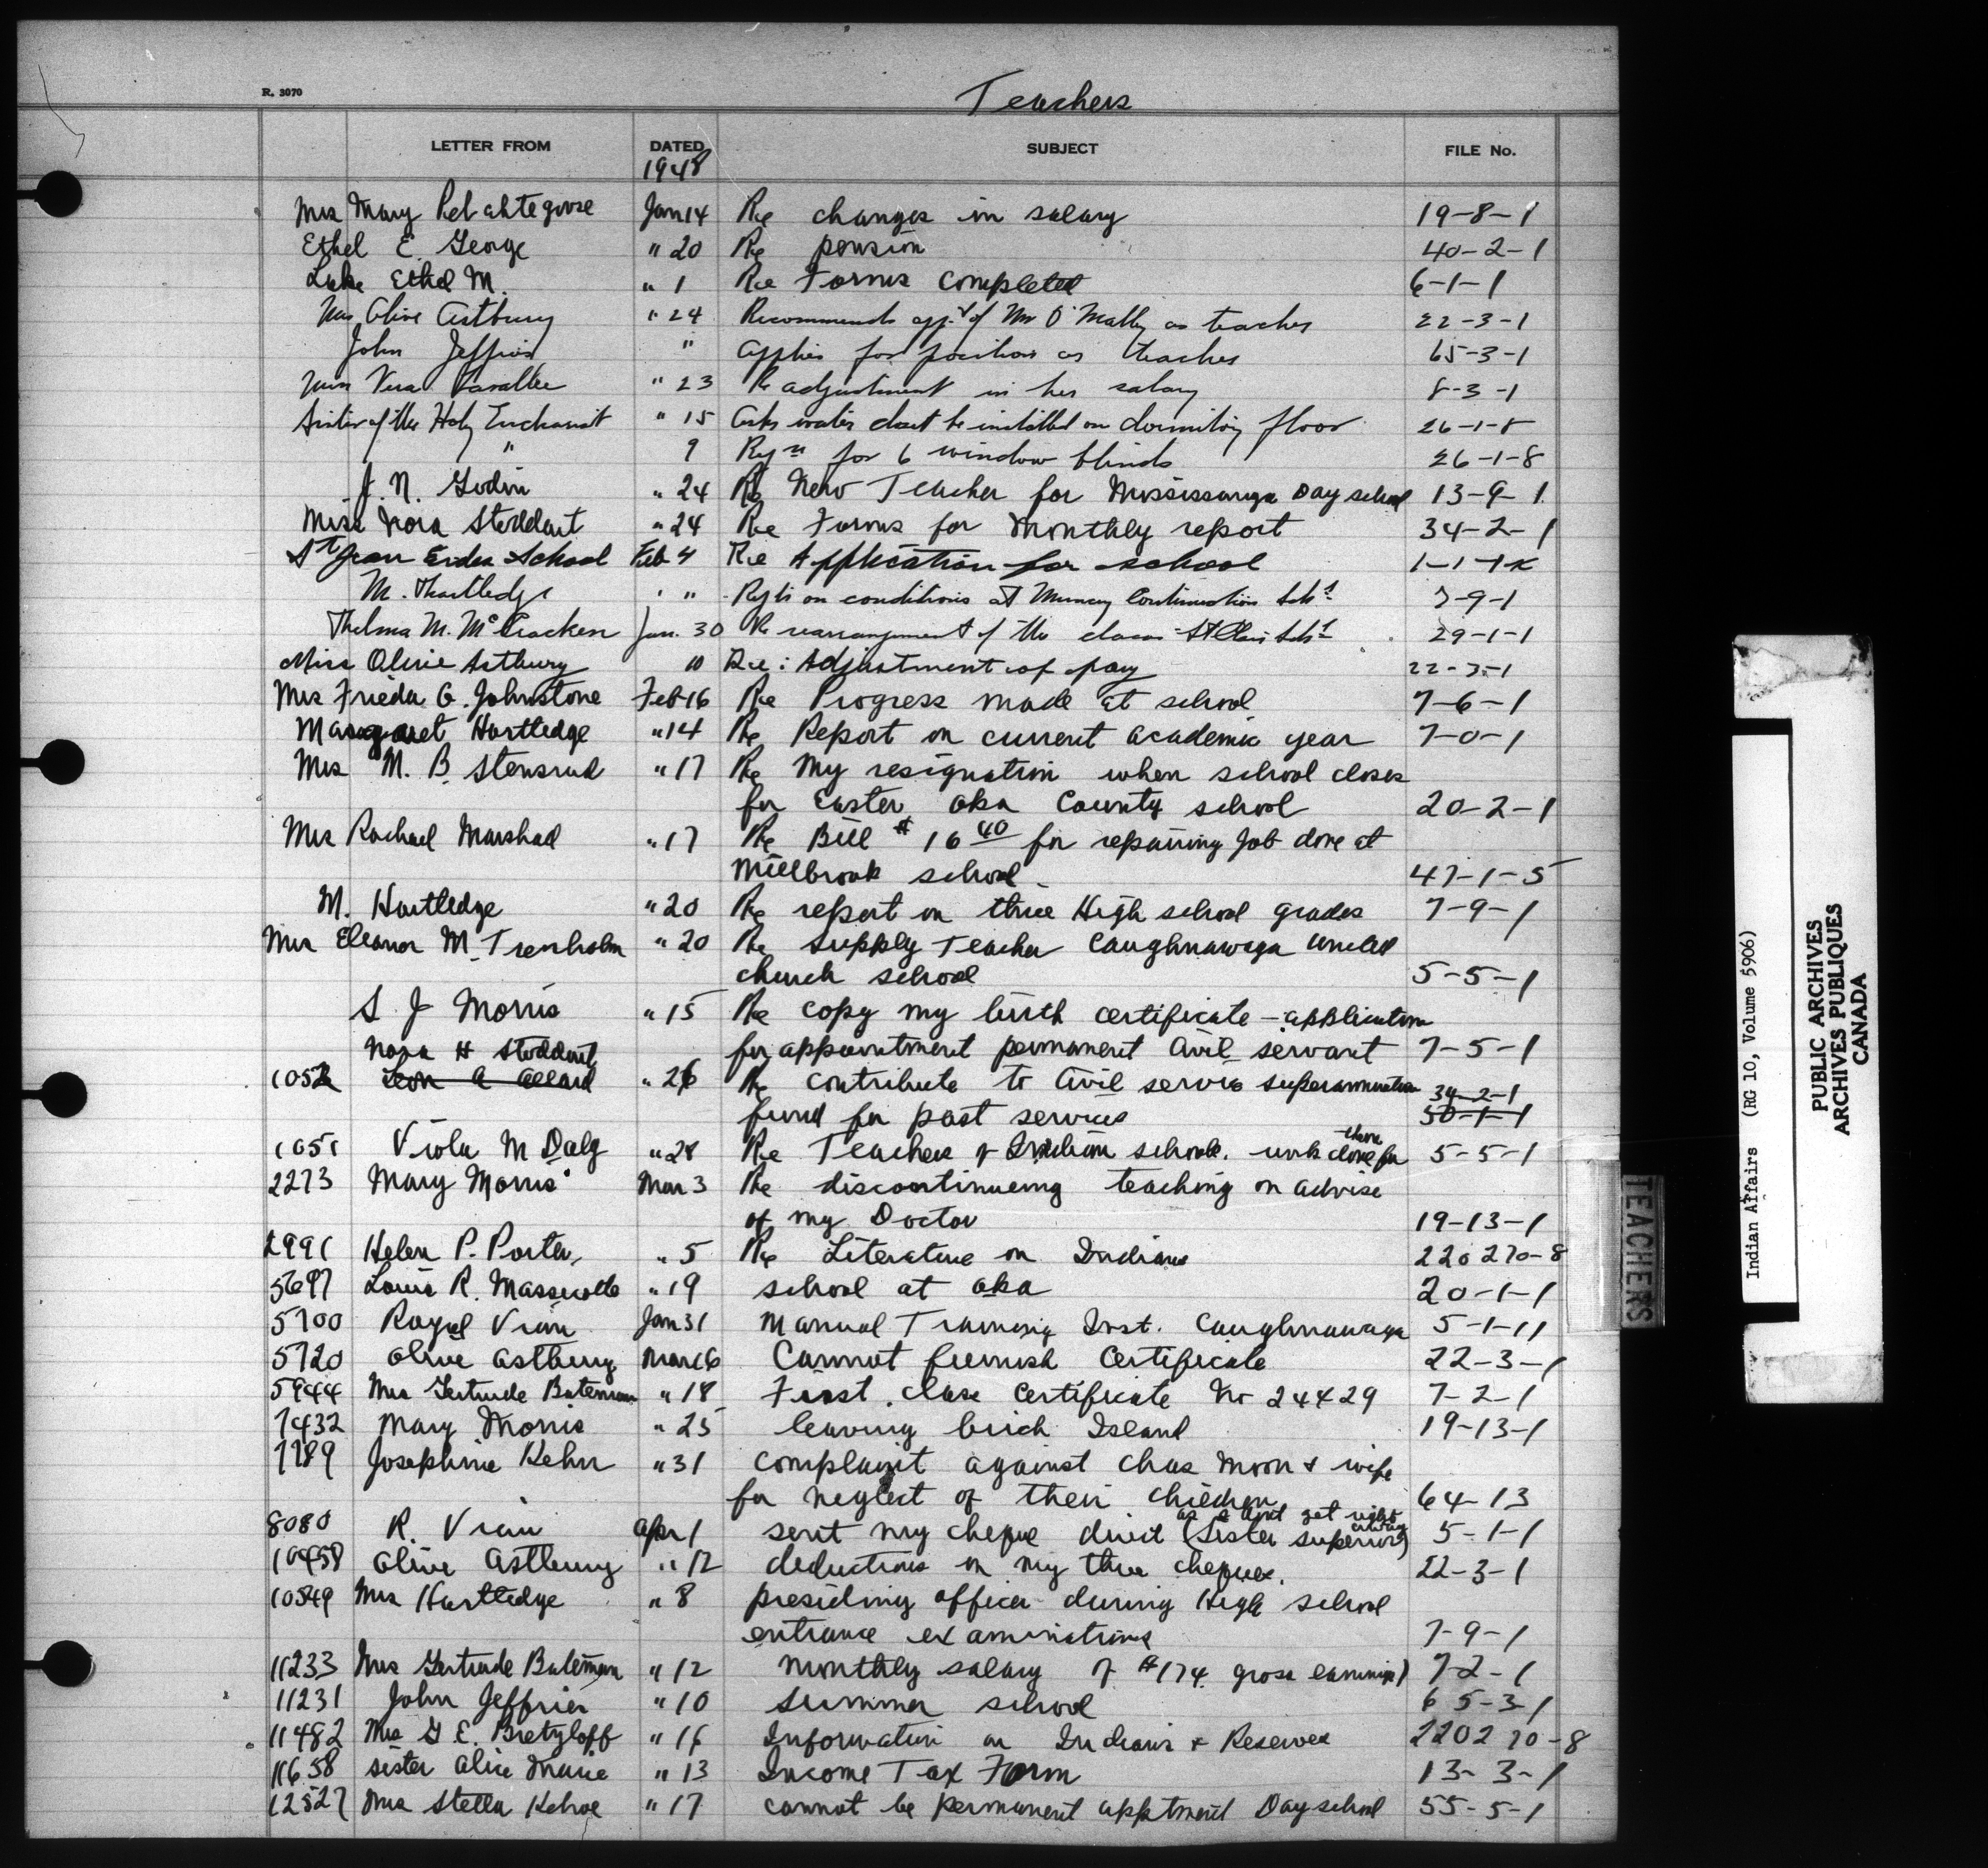 R. 3070
Teachers
LETTER FROM DATED SUBJECT FILE No.
1948
Mrs Mary Jan 14 Re changes in salary 19-8-1
Ethel E. George " 20 Re pension 40-2-1
Luke Ethel M. " 1 Re Forms completed 6-1-1
Olive Astbury " 24 Recommends of Mr O'Malley as teacher 22-3-1
John Jeffries " applies for position as teacher 65-3-1
Vera Lavallee " 23 Re adjustment in her salary 8-3-1
Sister of the Holy Eucharist " 15 Asks water closet be installed on dormitory floor 26-1-8
" 9 Rqn for 6 window blinds 26-1-8
J. N. Godin " 24 Re New Teacher for Mississauga Day school 13-9-1
Miss Nora Stoddart " 24 Re Forms for Monthly report 34-2-1
St Jean School Feb 4 Re Application for school 1-1-1-K
M. Hartledge " " on conditions at Muncey Continuation Schl 7-9-1
Thelma M. McCracken Jan. 30 Re rearrangement of the classes St Clair Schl 29-1-1
Miss Olive Astbury 10 Re: Adjustment of pay 22-3-1
Mrs Frieda G. Johnstone Feb 16 Re Progress made at school 7-6-1
Margaret Hartledge " 14 Re Report on current academic year 7-0-1
Mrs M. B. Stensrud " 17 Re My resignation when school closes
for Easter Oka County school 20-2-1
Mrs Rachael Marshall " 17 Re Bill $16 40 for repairing job done at
Millbrook school. 47-1-5
M. Hartledge " 20 Re report on three High school grades 7-9-1
Mrs Eleanor M. Trenholm " 20 Re supply Teacher Caughnawaga United
church school 5-5-1
S. J Morris " 15 Re copy my birth certificate - application
Nora H Stoddart for appointment permanent Civil servant 7-5-1
1052 Leon A Allard " 26 Re contribute to Civil service superannuation 34-2-1
fund for past services 50-1-1
1051 Viola M Daly " 28 Re Teachers of Indian schools. work done for them 5-5-1
2273 Mary Morris Mar 3 Re discontinueing teaching on advise
of my Doctor 19-13-1
2991 Helen P. Porter " 5 Re Literature on Indians 220 270-8
5697 Louis R. Massicotte " 19 school at Oka 20-1-1
5700 Royal Viau Jan 31 Manual Training Inst. Caughnawaga 5-1-11
5720 Olive Astbury Mar 16 Cannot furnish Certificate 22-3-1
5944 Mrs Gertrude Bateman " 18 First class Certificate No 24429 7-2-1
7432 Mary Morris " 25 leaving birch Island 19-13-1
7789 Josephine Kehn " 31 complaint against Chas Moon & wife
for neglect of their children 64-13
8080 R. Viau Apr 1 sent my cheque direct (Sister superior) as I don't get right away 5-1-1
10458 Olive Astbury " 12 deductions on my three cheques. 22-3-1
10549 Mrs Hartledge " 8 presiding officer during High school
entrance examinations 7-9-1
11233 Mrs Gertrude Bateman " 12 Monthly salary of $174. gross earnings) 7-2-1
11231 John Jeffries " 10 summer school 65-3-1
11482 Mrs G E. Bretzloff " 16 Information on Indians & Reserves 220270-8
11658 Sister Alice Marie " 13 Income Tax Form 13-3-1
12527 Mrs Stella Kehoe " 17 cannot be permanent apptment Day school 55-5-1
TEACHERS
Indian Affairs (RG 10, Volume 5906)
PUBLIC ARCHIVES
ARCHIVES PUBLIQUES
CANADA